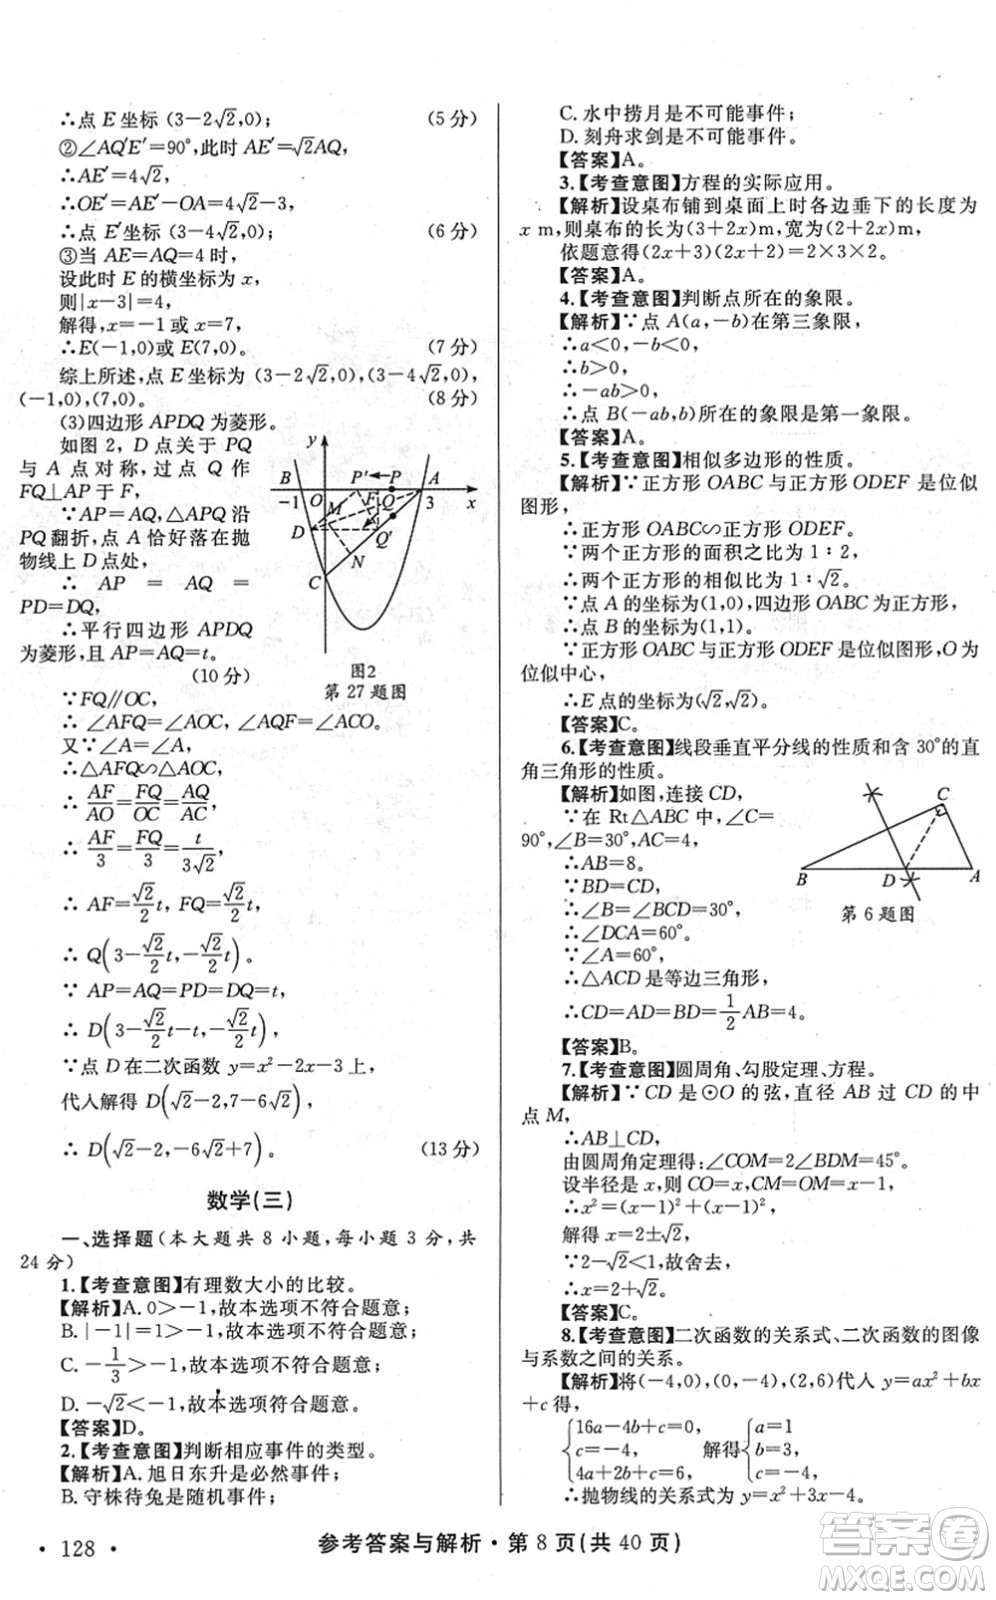 ∴点 E 坐标 (3-2√2,0); (5 分)
②∠AQ′E′=90°,此时 AE′=√2AQ,
∴AE′=4√2,
∴OE′=AE′-OA=4√2-3,
∴点 E′坐标 (3-4√2,0); (6 分)
③当 AE=AQ=4 时,
设此时 E 的横坐标为 x,
则|x-3|=4,
解得,x=-1或 x=7,
∴E(-1,0)或 E(7,0)。 (7 分)
综上所述,点 E 坐标为 (3-2√2,0),(3-4√2,0),
(-1,0),(7,0)。 (8 分)
(3)四边形 APDQ 为菱形。
如图 2, D 点关于 PQ
与 A 点对称,过点 Q 作
FQ⊥AP 于 F,
∵AP=AQ,△APQ 沿
PQ翻折,点 A 恰好落在抛
物线上 D 点处,
∴ AP = AQ =
PD=DQ,
∴平行四边形 APDQ
为菱形,且 AP=AQ=t。
(10 分)
y
B P′ P A
-1 O F Q 3 x
M
D Q′
N
C
图2
第 27 题图
∵FQ∥OC,
∴ ∠AFQ=∠AOC,∠AQF=∠ACO。
又∵∠A=∠A,
∴△AFQ∽△AOC,
∴ AF/AO=FQ/OC=AQ/AC,
∴ AF/3=FQ/3=t/3√2,
∴ AF=√2/2t,FQ=√2/2t,
∴ Q(3-√2/2t,-√2/2t)。
∵ AP=AQ=PD=DQ=t,
∴ D(3-√2/2t-t,-√2/2t)。
∵点 D 在二次函数 y=x²-2x-3 上,
代人解得 D(√2-2,7-6√2),
∴ D(√2-2,-6√2+7)。 (13 分)
数学(三)
一、选择题(本大题共 8 小题,每小题 3 分,共
24 分)
1.【考查意图】有理数大小的比较。
【解析】A.0>-1,故本选项不符合题意;
B.|-1|=1>-1,故本选项不符合题意;
C.-1/3>-1,故本选项不符合题意;
D.-√2<-1,故本选项符合题意。
【答案】D。
2.【考查意图】判断相应事件的类型。
【解析】A. 旭日东升是必然事件;
B. 守株待兔是随机事件;
C. 水中捞月是不可能事件;
D. 刻舟求剑是不可能事件。
【答案】A。
3.【考查意图】方程的实际应用。
【解析】设桌布铺到桌面上时各边垂下的长度为
x m,则桌布的长为(3+2x)m,宽为(2+2x)m,
依题意得(2x+3)(2x+2)=2×3×2。
【答案】A。
4.【考查意图】判断点所在的象限。
【解析】∵点 A(a,-b)在第三象限,
∴a<0,-b<0,
∴b>0,
∴-ab>0,
∴点 B(-ab,b)所在的象限是第一象限。
【答案】A。
5.【考查意图】相似多边形的性质。
【解析】∵正方形 OABC 与正方形 ODEF 是位似
图形,
∴正方形 OABC∽正方形 ODEF。
∵两个正方形的面积之比为 1∶2,
∴两个正方形的边长之比为 1∶√2。
∵点 A 的坐标为(1,0),四边形 OABC 为正方形,
∴点 B 的坐标为(1,1)。
∵正方形 OABC 与正方形 ODEF 是位似图形,O 为
位似中心,
∴E 点的坐标为(√2,√2)。
【答案】C。
6.【考查意图】线段垂直平分线的性质和含 30°的直
角三角形的性质。
【解析】如图,连接 CD,
∵在 Rt△ABC 中,∠C=
90°,∠B=30°,AC=4,
∴AB=8。
∵BD=CD,
∴∠B=∠BCD=30°,
∴∠DCA=60°。
∵∠A=60°,
∴△ACD 是等边三角形,
∴CD=AD=1/2AB=4。
C
B D A
第 6 题图
【答案】B。
7.【考查意图】圆周角、勾股定理、方程。
【解析】∵CD 是⊙O 的弦,直径 AB 过 CD 的中
点 M,
∴AB⊥CD,
由圆周角定理得:∠COM=2∠BDM=45°。
设半径是 x,CO=x,CM=OM=x-1,
∴x²=(x-1)²+(x-1)²,
解得 x=2±√2。
∵2-√2<1,故舍去,
∴x=2+√2。
【答案】C。
8.【考查意图】二次函数的关系式、二次函数的图像
与系数之间的关系。
【解析】将(-4,0),(0,-4),(2,6)代人 y=ax²+bx
+c 得,
16a-4b+c=0, a=1
c=-4, 解得 b=3,
4a+2b+c=6, c=-4,
∴抛物线的关系式为 y=x²+3x-4。
• 128 •
参考答案与解析 • 第 8 页(共 40 页)
答案圈
MXQE.COM